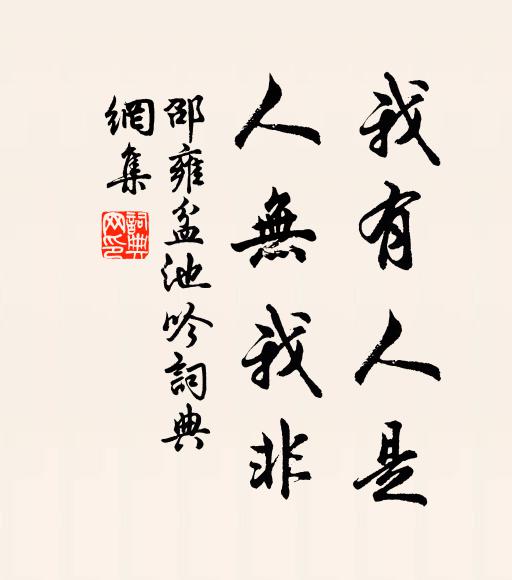 我有人是
人無我非
邵雍盆池吟詞典
網集
詞典
网印